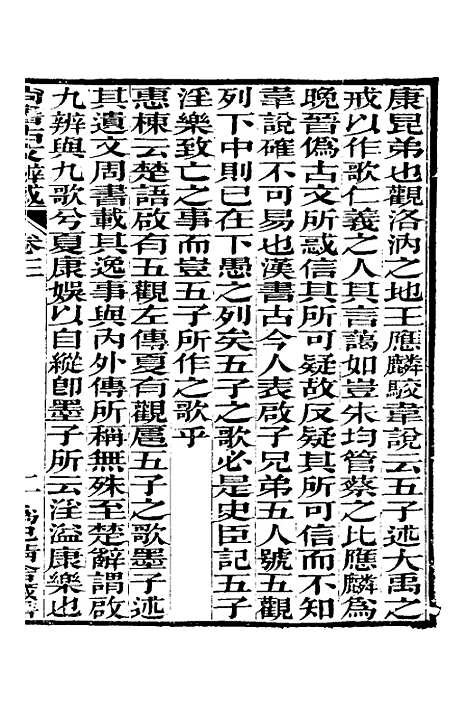 康昆弟也觀洛汭之地王應麟駮韋說云五子述大禹之
戒以作歌仁義之人其言藹如豈朱均管蔡之比應麟為
晚晉偽古文所惑信其所可疑故反疑其所可信而不知
韋說確不可易也漢書古今人表啟子兄弟五人號五觀
列下中則已在下愚之列矣五子之歌必是史臣記五子
淫樂致亡之事而豈五子所作之歌乎
惠棟云楚語啟有五觀左傳夏有觀扈五子之歌墨子述
其遺文周書載其逸事與內外傳所稱無殊至楚辭謂啟
九辨與九歌兮夏康娛以自縱卽墨子所云淫溢康樂也
卷三
二